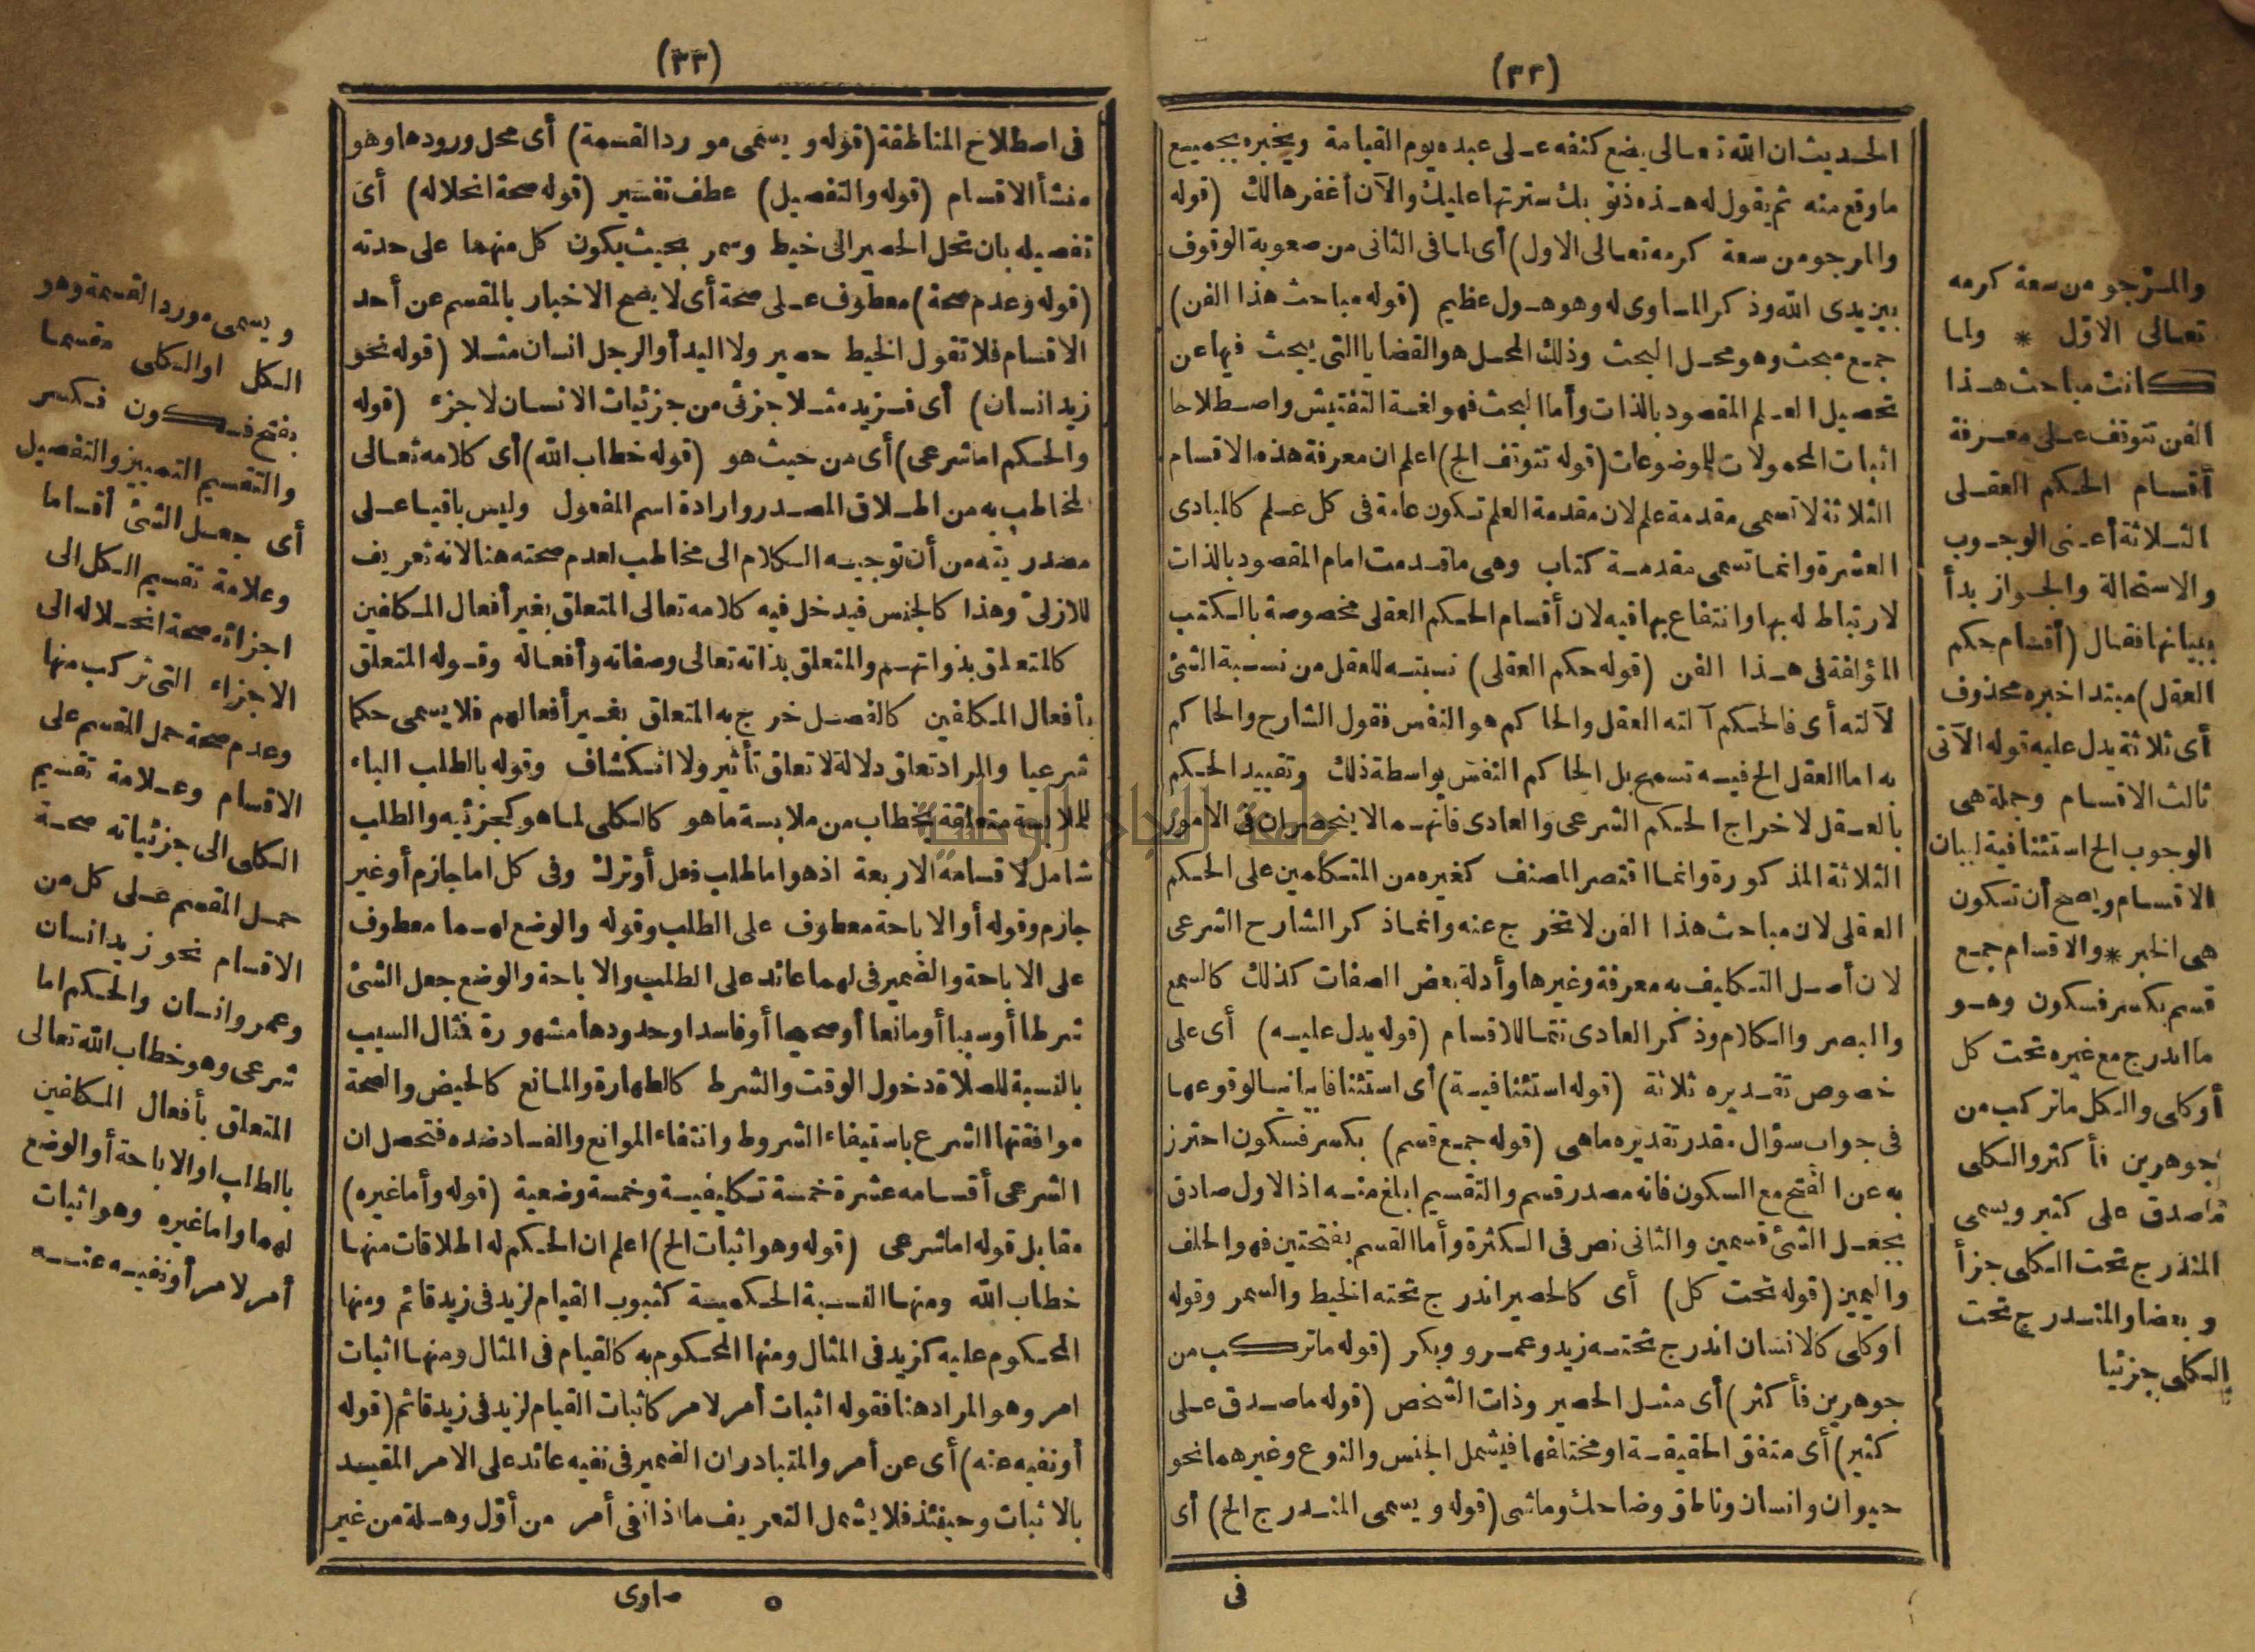 (٣٢)
الحديث ان الله تعالى يضع كنفه على عبده يوم القيامة ويخبره بجميع
ما وقع منه ثم يقول له هذه ذنوبك سترتها عليك والآن أغفرها لك (قوله
والمرجو من سعة كرمه تعالى الاول) أى لما فى الثانى من صعوبة الوقوف
بين يدى الله وذكر المساوى له وهو هول عظيم (قوله مباحث هذا الفن)
جمع مبحث وهو محل البحث وذلك المحل هو القضايا التى يبحث فيها عن
تحصيل العلم المقصود بالذات وأما البحث فهو لغة التفتيش واصطلاحا
اثبات المحمولات للموضوعات (قوله تتوقف الخ) اعلم ان معرفة هذه الاقسام
الثلاثة لا تسمى مقدمة علم لان مقدمة العلم تكون عامة فى كل علم كالمبادى
العشرة وانما تسمى مقدمة كتاب وهى ما قدمت امام المقصود بالذات
لارتباط له بها وانتفاع بها فيه لان أقسام الحكم العقلى مخصوصة بالكتب
المؤلفة فى هذا الفن (قوله حكم العقلى) نسبته للعقل من نسبة الشئ
لآلته أى فالحكم آلته العقل والحاكم هو النفس فقول الشارح والحاكم
به اما العقل الخ فيه تسمح بل الحاكم النفس بواسطة ذلك وتقييد الحكم
بالعقل لاخراج الحكم الشرعى والعادى فانهما لا ينحصران فى الامور
الثلاثة المذكورة وانما اقتصر المصنف كغيره من المتكلمين على الحكم
العقلى لان مباحث هذا الفن لا تخرج عنه وانما ذكر الشارح الشرعى
لان أصل التكليف به معرفة وغيرها وأدلة بعض الصفات كذلك كالسمع
والبصر والكلام وذكر العادى تتمما للاقسام (قوله يدل عليه) أى على
خصوص تقديره ثلاثة (قوله استئنافية) أى استئنافا بيانيا لوقوعها
فى جواب سؤال مقدر تقديره ماهى (قوله جمع قسم) بكسر فسكون احترز
به عن الفتح مع السكون فانه مصدر قسم والتقسيم ابلغ منه اذ الاول صادق
بجعل الشئ قسمين والثانى نص فى الكثرة وأما القسم بفتحتين فهو الحلف
واليمين (قوله تحت كل) أى كالحصير اندرج تحته الخيط والسمر وقوله
أوكلى كالانسان اندرج تحته زيد وعمرو وبكر (قوله ماتركب من
جوهرين فأكثر) أى مثل الحصير وذات الشخص (قوله ما صدق على
كثير) أى متفق الحقيقة او مختلفها فيشمل الجنس والنوع وغيرهما نحو
حيوان وانسان وناطق وضاحك وماشى (قوله ويسمى المندرج الخ) أى
فى
والمترجو من سعة كرمه
تعالى الاوّل * ولما
كانت مباحث هذا
الفن تتوقف على معرفة
أقسام الحكم العقلى
الثلاثة أعنى الوجوب
والاستحالة والجواز بدأ
ببيانها فقال (أقسام حكم
العقل) مبتدا خبره محذوف
أى ثلاثة يدل عليه قوله الآتى
ثالث الاقسام وجملة هى
الوجوب الخ استئنافية لبيان
الاقسام ويصح أن تكون
هى الخبر * والاقسام جمع
قسم بكسر فسكون وهو
ما اندرج مع غيره تحت كل
أوكلى والكل ماتركب من
جوهرين فأكثر والكلى
ماصدق على كثير ويسمى
المندرج تحت الكل جزأ
وبعضا والمندرج تحت
الكلى جزئيا
(٣٣)
فى اصطلاح المناطقة (قوله ويسمى مورد القسمة) أى محل ورودها وهو
منشأ الاقسام (قوله والتفصيل) عطف تفسير (قوله صحة انحلاله) أى
تفصيله بان تحل الحصير الى خيط وسمر بحيث يكون كل منهما على حدته
(قوله وعدم صحة) معطوف على صحة أى لا يصح الاخبار بالمقسم عن أحد
الاقسام فلا تقول الخيط حصير ولا اليد أو الرجل انسان مثلا (قوله نحو
زيد انسان) أى فزيد مثلا جزئى من جزئيات الانسان لا جزء (قوله
والحكم اما شرعى) أى من حيث هو (قوله خطاب الله) أى كلامه تعالى
المخاطب به من اطلاق المصدر وارادة اسم المفعول وليس باقيا على
مصدريته من أن توجيه الكلام الى مخاطب لعدم صحته هنا لانه تعريف
للازلىّ وهذا كالجنس فيدخل فيه كلامه تعالى المتعلق بغير أفعال المكلفين
كالمتعلق بذواتهم والمتعلق بذاته تعالى وصفاته وأفعاله وقوله المتعلق
بأفعال المكلفين كالفصل خرج به المتعلق بغير أفعالهم فلا يسمى حكما
شرعيا والمراد تعلق دلالة لا تعلق تأثير ولا انكشاف وقوله بالطلب الباء
للملابسة متعلقة بخطاب من ملابسة ماهو كالكلى لما هو كجزئيه والطلب
شامل لاقسامه الاربعة اذ هو اما طلب فعل أو ترك وفى كل اما جازم أو غير
جازم وقوله أو الاباحة معطوف على الطلب وقوله والوضع لهما معطوف
على الاباحة والضمير فى لهما عائد على الطلب والاباحة والوضع جعل الشئ
شرطا أو سببا أو مانعا أو صحيحا أو فاسدا وحدودها مشهورة فمثال السبب
بالنسبة للصلاة دخول الوقت والشرط كالطهارة والمانع كالحيض والصحة
موافقتها الشرع باستيفاء الشروط وانتفاء الموانع والفساد ضده فتحصل ان
الشرعى أقسامه عشرة خمسة تكليفية وخمسة وضعية (قوله وأما غيره)
مقابل قوله اما شرعى (قوله وهو اثبات الخ) اعلم ان الحكم له اطلاقات منها
خطاب الله ومنها النسبة الحكمية كثبوت القيام لزيد فى زيد قائم ومنها
المحكوم عليه كزيد فى المثال ومنها المحكوم به كالقيام فى المثال ومنها اثبات
امر وهو المراد هنا فقوله اثبات أمر لامر كاثبات القيام لزيد فى زيد قائم (قوله
أو نفيه عنه) أى عن أمر والمتبادر ان الضمير فى نفيه عائد على الامر المقيد
بالاثبات وحينئذ فلا يشمل التعريف ما اذا نفى أمر من أوّل وهلة من غير
٥ صاوى
ويسمى مورد القسمة وهو
الكل او الكلى مقسما
بفتح فسكون فكسر
والتقسيم التمييز والتفصيل
أى جعل الشئ أقساما
وعلامة تقسيم الكل الى
اجزائه صحة انحلاله الى
الاجزاء التى تركب منها
وعدم صحة حمل المقسم على
الاقسام وعلامة تقسيم
الكلى الى جزئياته صحة
حمل المقسم على كل من
الاقسام نحو زيد انسان
وعمرو انسان والحكم اما
شرعى وهو خطاب الله تعالى
المتعلق بأفعال المكلفين
بالطلب او الاباحة أو الوضع
لهما واما غيره وهو اثبات
أمر لامر أو نفيه عنه